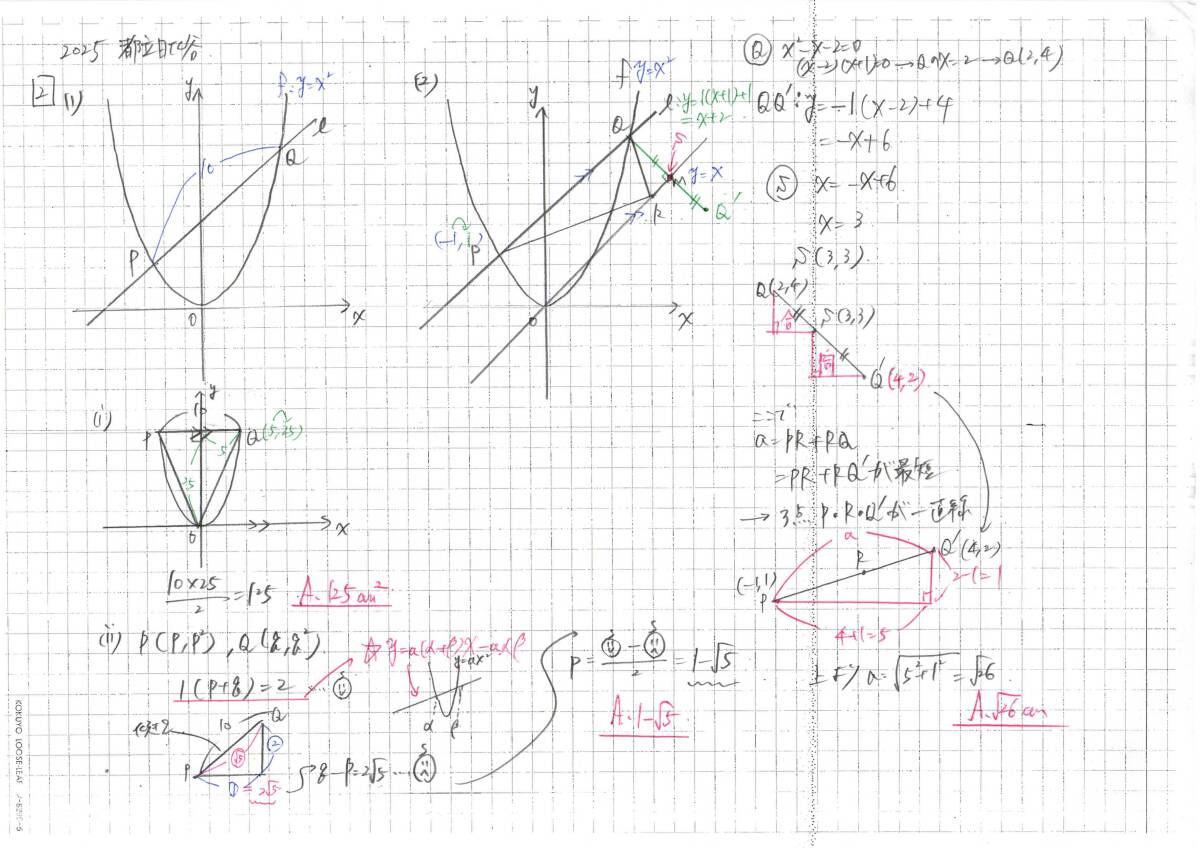 2025 都立日比谷
2 (1)
f: y=x²
y
l
10
Q
P
O
x
(2)
f y=x²
y
l: y=1(x+1)+1
=x+2
Q
S
y=x
M
R
Q'
(-1, 1)
P
O
x
Q x²-x-2=0
(x-2)(x+1)=0→Qのx=2→Q(2,4)
QQ': y=-1(x-2)+4
=-x+6
S x=-x+6
x=3
S(3,3)
Q(2,4)
合
S(3,3)
同
Q'(4,2)
ここで
a=PR+RQ
=PR+RQ'が最短
→3点P・R・Q'が一直線
a
Q'(4,2)
R
(-1,1)
P
2-1=1
4+1=5
より a=√5²+1²=√26
A.√26cm
(i)
y
10
P
Q(5,25)
5
25
O
x
10×25
2
=125 A.125cm²
(ii) P(P,P²), Q(q,q²)
☆ y=a(α+β)x-aαβ
y=ax²
α β
1(P+q)=2 …
傾き2
10
Q
√5
2
P
1
=2√5
q-P=2√5 …
P=
2
=1-√5
A.1-√5
KOKUYO LOOSE-LEAF